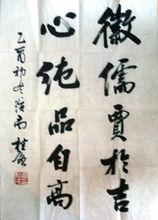 徽儒賈於吉
心純品自高
乙酉初冬